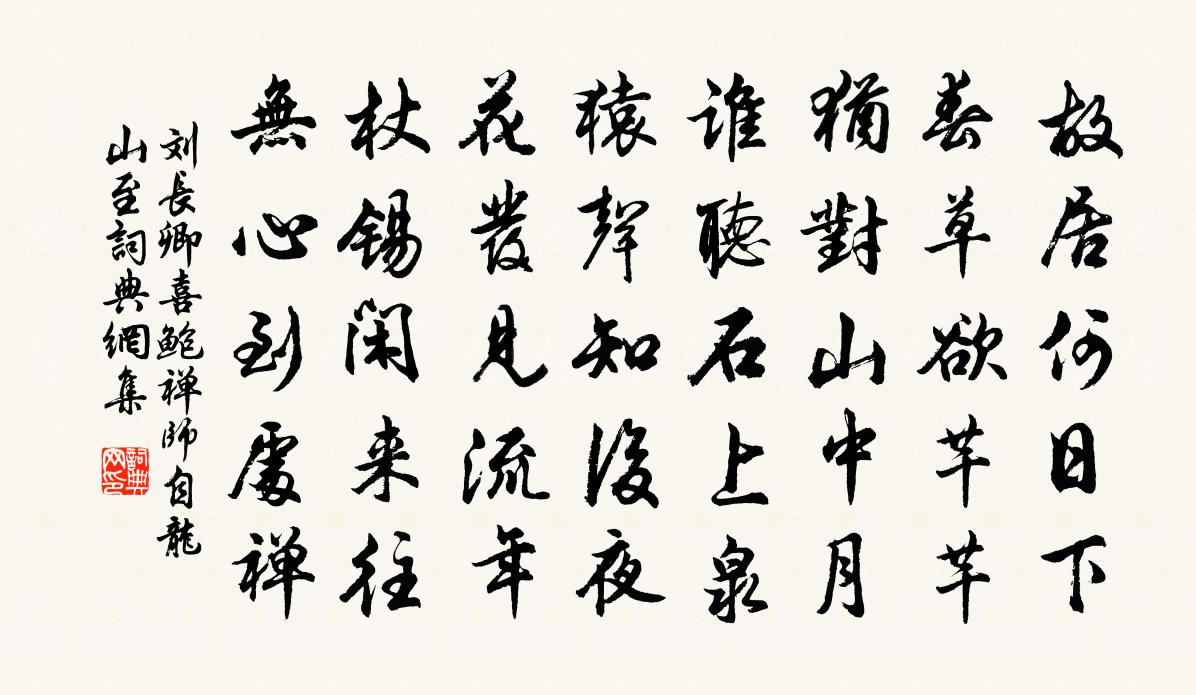 故居何日下
春草欲芊芊
猶對山中月
誰聽石上泉
猿聲知後夜
花發見流年
杖錫閑来往
無心到處禅
刘長卿喜鮑禅師自龍
山至詞典網集
詞典网印